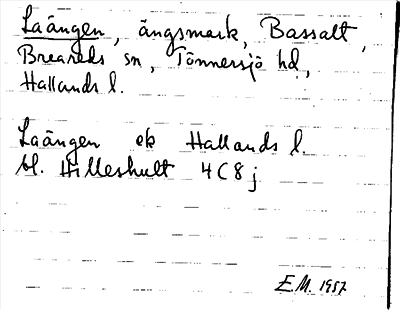 Laängen, ängsmark, Bassalt,
Breareds sn, Tönnersjö hd,
Hallands l.
Laängen ek Hallands l.
bl. Hilleshult 4C8j
E.M. 1957